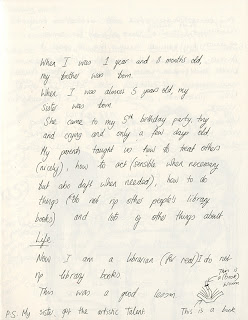 When I was 1 year and 8 months old,
my brother was born
When I was almost 5 years old my
sister was born
She came to my 5th birthday party, tiny
and crying and only a few days old
My parents taught us how to treat others
(nicely), how to act (sensible when necessary
but also daft when needed), how to do
things (do not rip other people's library
books) and lots of other things about
Life
Now I am a librarian (for real) I do not
rip library books
This was a good lesson
This is
a (book)
P.S My sister got the artistic Talent
This is a book